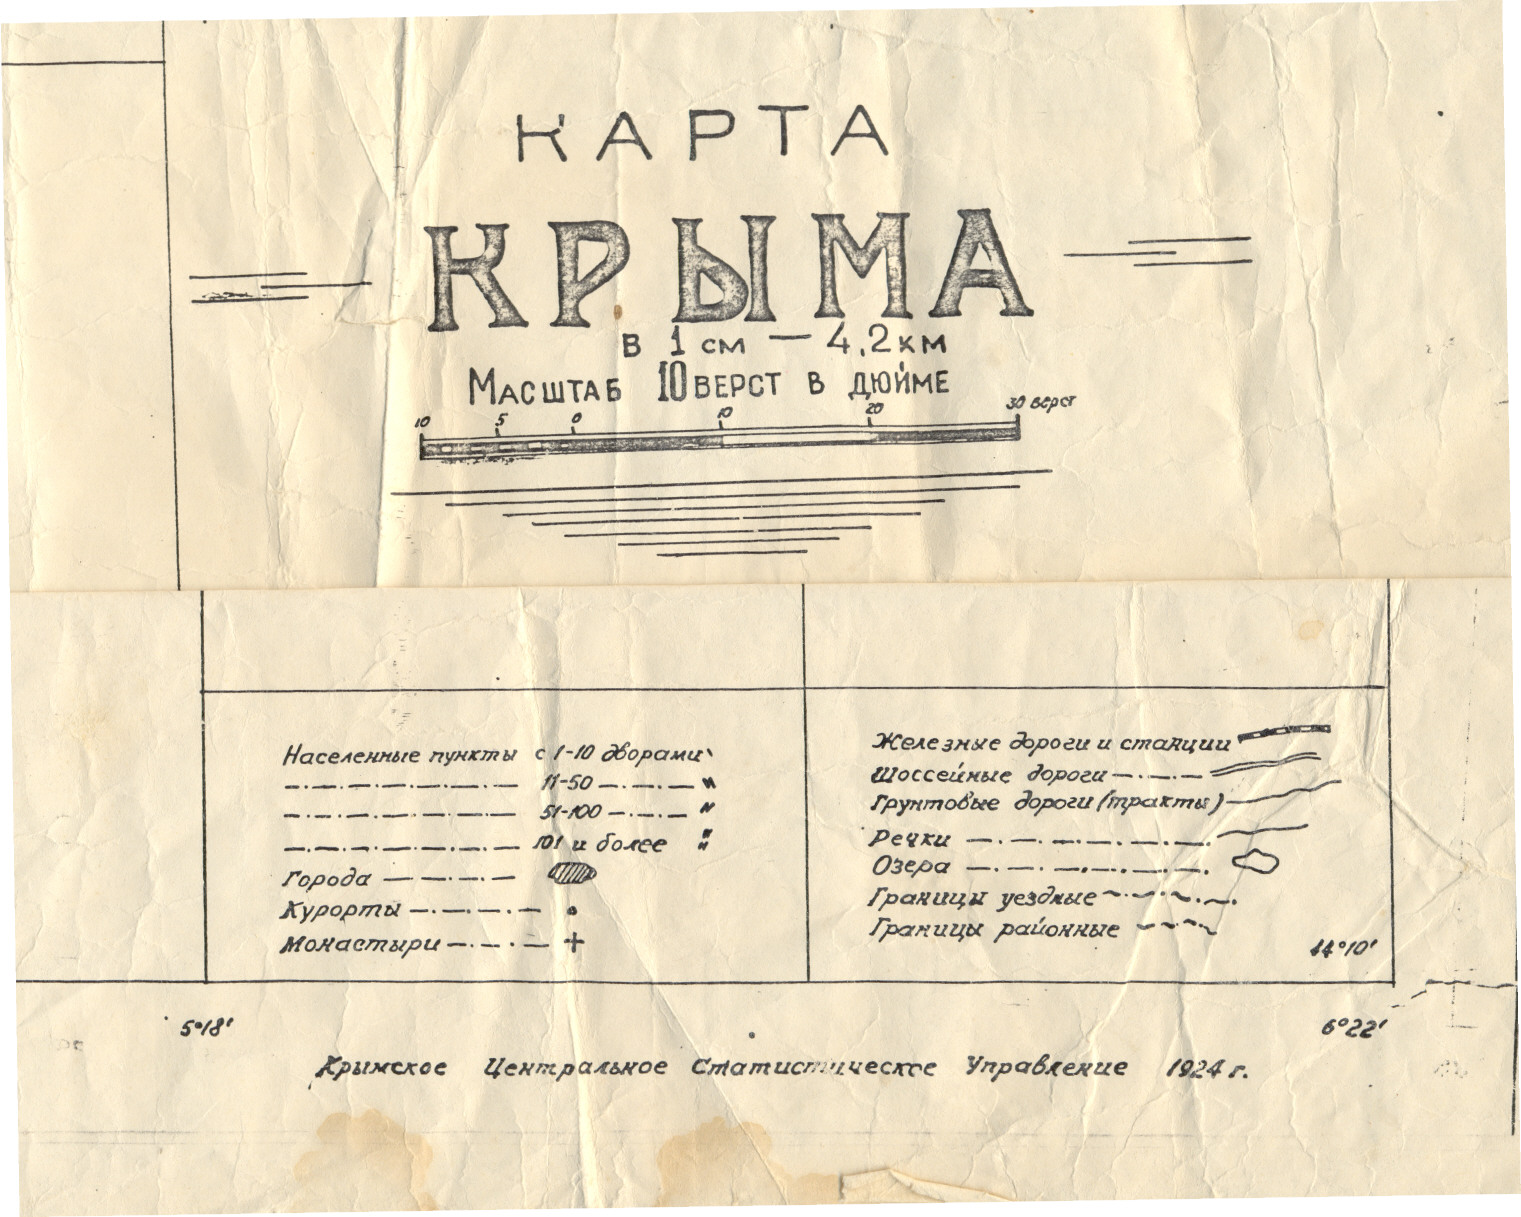 КАРТА
КРЫМА
в 1 см — 4,2 км
Масштаб 10 верст в дюйме
10 5 0 10 20 30 верст
Населенные пункты с 1-10 дворами
—·—·—·— 11-50 —·—·— "
—·—·—·— 51-100 —·—·— "
—·—·—·— 101 и более "
Города —·—·—
Курорты —·—·—
Монастыри —·—·— +
Железные дороги и станции
Шоссейные дороги —·—·—
Грунтовые дороги (тракты)
Речки —·—·—
Озера —·—·—
Границы уездные
Границы районные
44°10'
5°18'
6°22'
Крымское Центральное Статистическое Управление 1924 г.